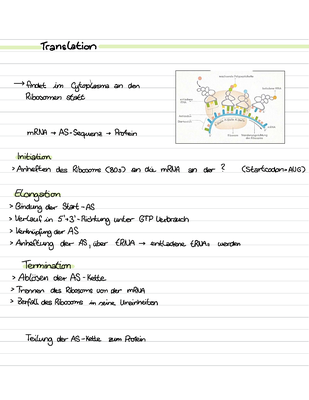 Translation
→ findet im Cytoplasma an den
Ribosomen statt
mRNA → AS-Sequenz → Protein
Initiation
> Anheften des Ribosoms (80s) an die mRNA an der ? (Startcodon=AUG)
Elongation
> Bindung der Start-AS
> Verlauf in 5'→3'-Richtung unter GTP Verbrauch
> Verknüpfung der AS
> Anhaftung der AS über tRNA → entladene tRNAs werden
Termination
> Ablösen der AS-Kette
> Trennen des Ribosoms von der mRNA
> Zerfall des Ribosoms in seine Unreinheiten
Teilung der AS-Kette zum Protein